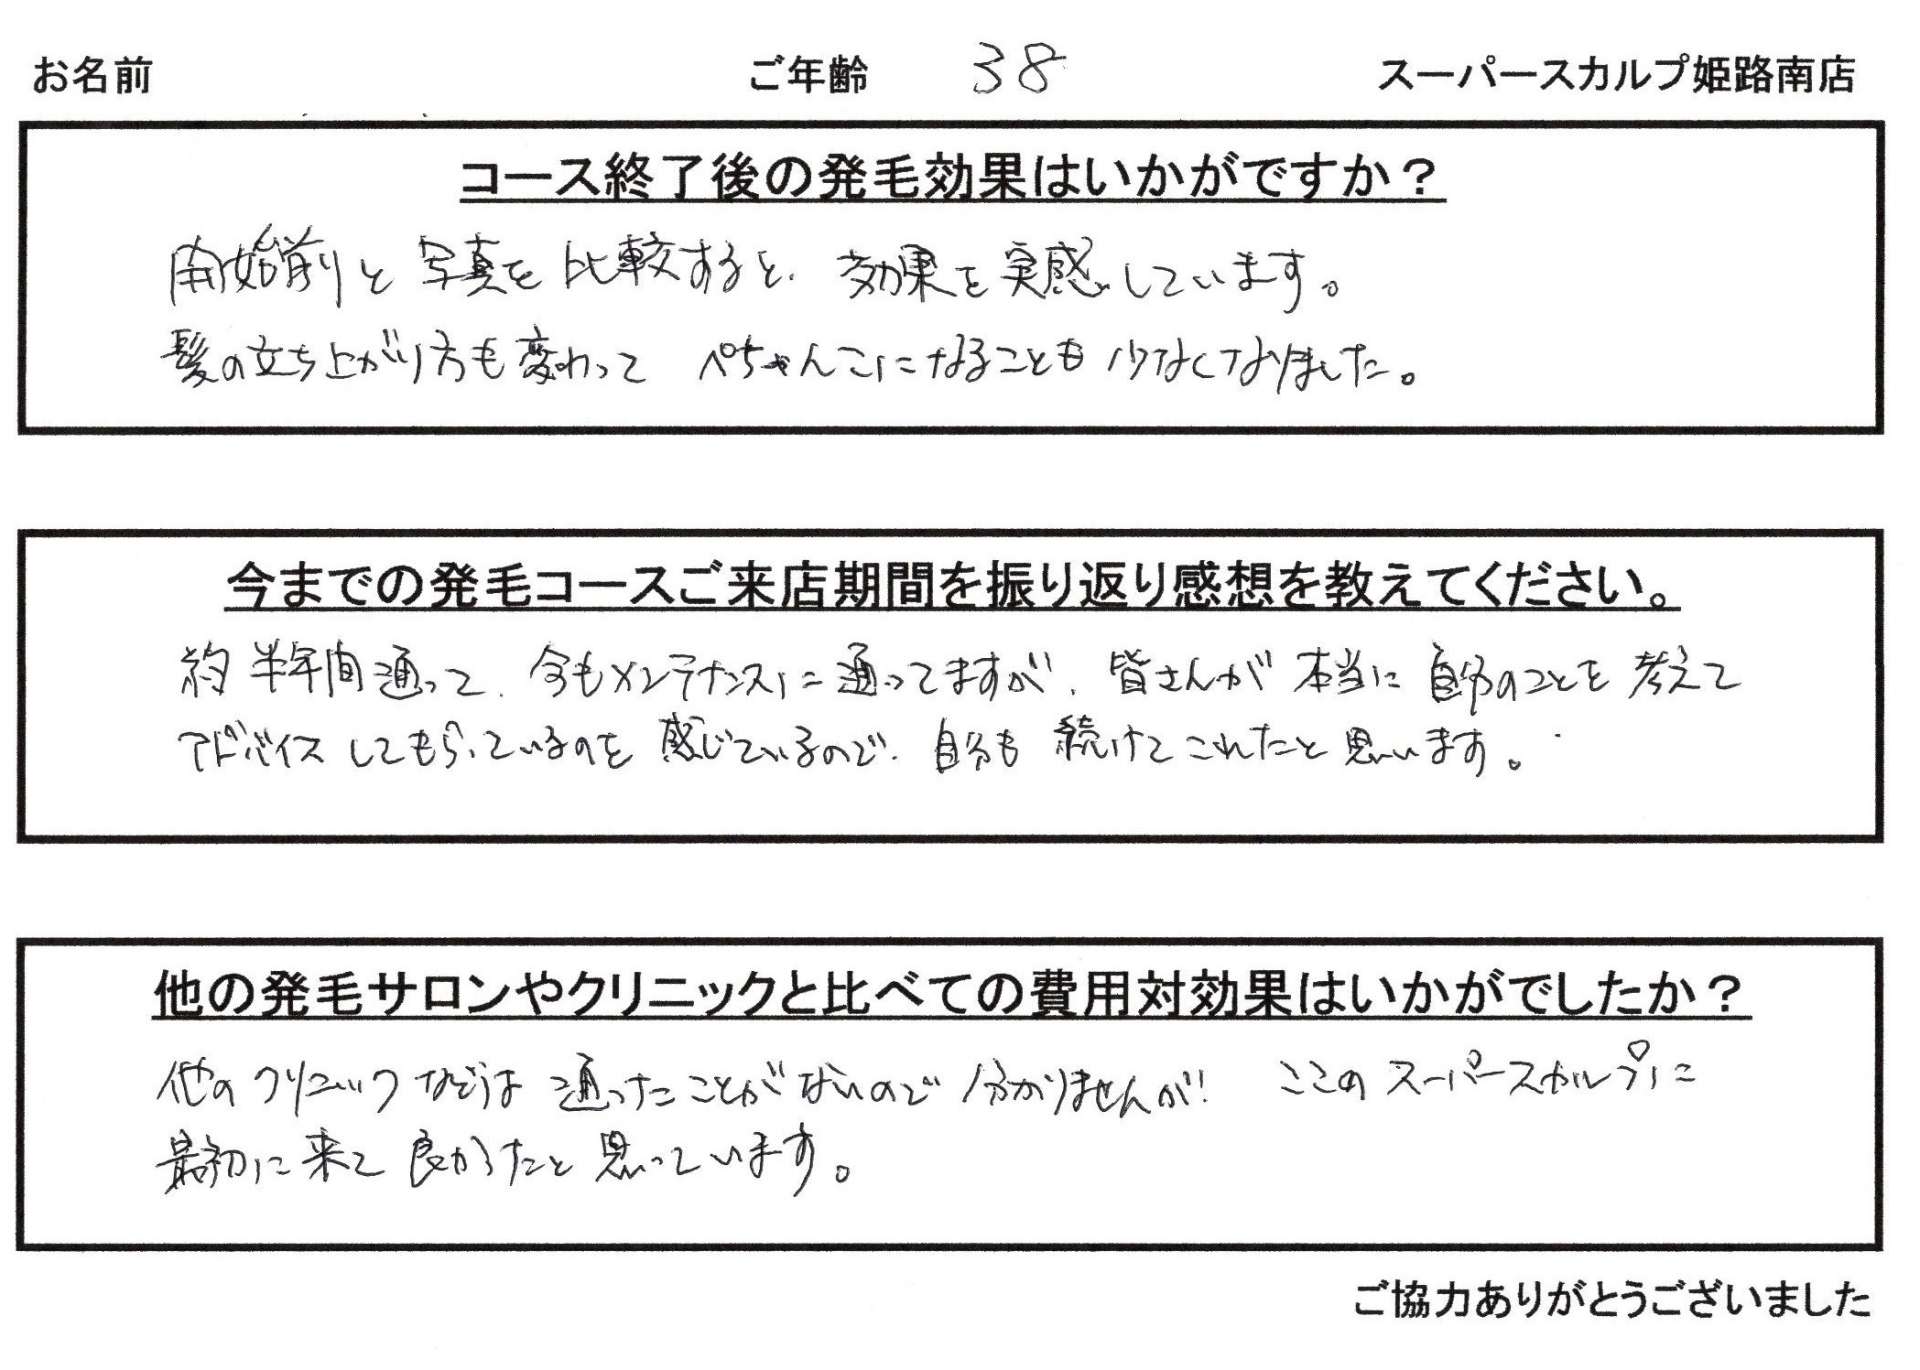 お名前 ご年齢 38 スーパースカルプ姫路南店
コース終了後の発毛効果はいかがですか？
開始前と写真を比較すると、効果を実感しています。
髪の立ち上がり方も変わって ぺちゃんこになることも少なくなりました。
今までの発毛コースご来店期間を振り返り感想を教えてください。
約半年間通って、今もメンテナンスに通ってますが、皆さんが本当に自分のことを考えて
アドバイスしてもらっているのを感じているので、自分も続けてこれたと思います。
他の発毛サロンやクリニックと比べての費用対効果はいかがでしたか？
他のクリニックなどは通ったことがないので分かりませんが、ここのスーパースカルプに
最初に来て良かったと思っています。
ご協力ありがとうございました